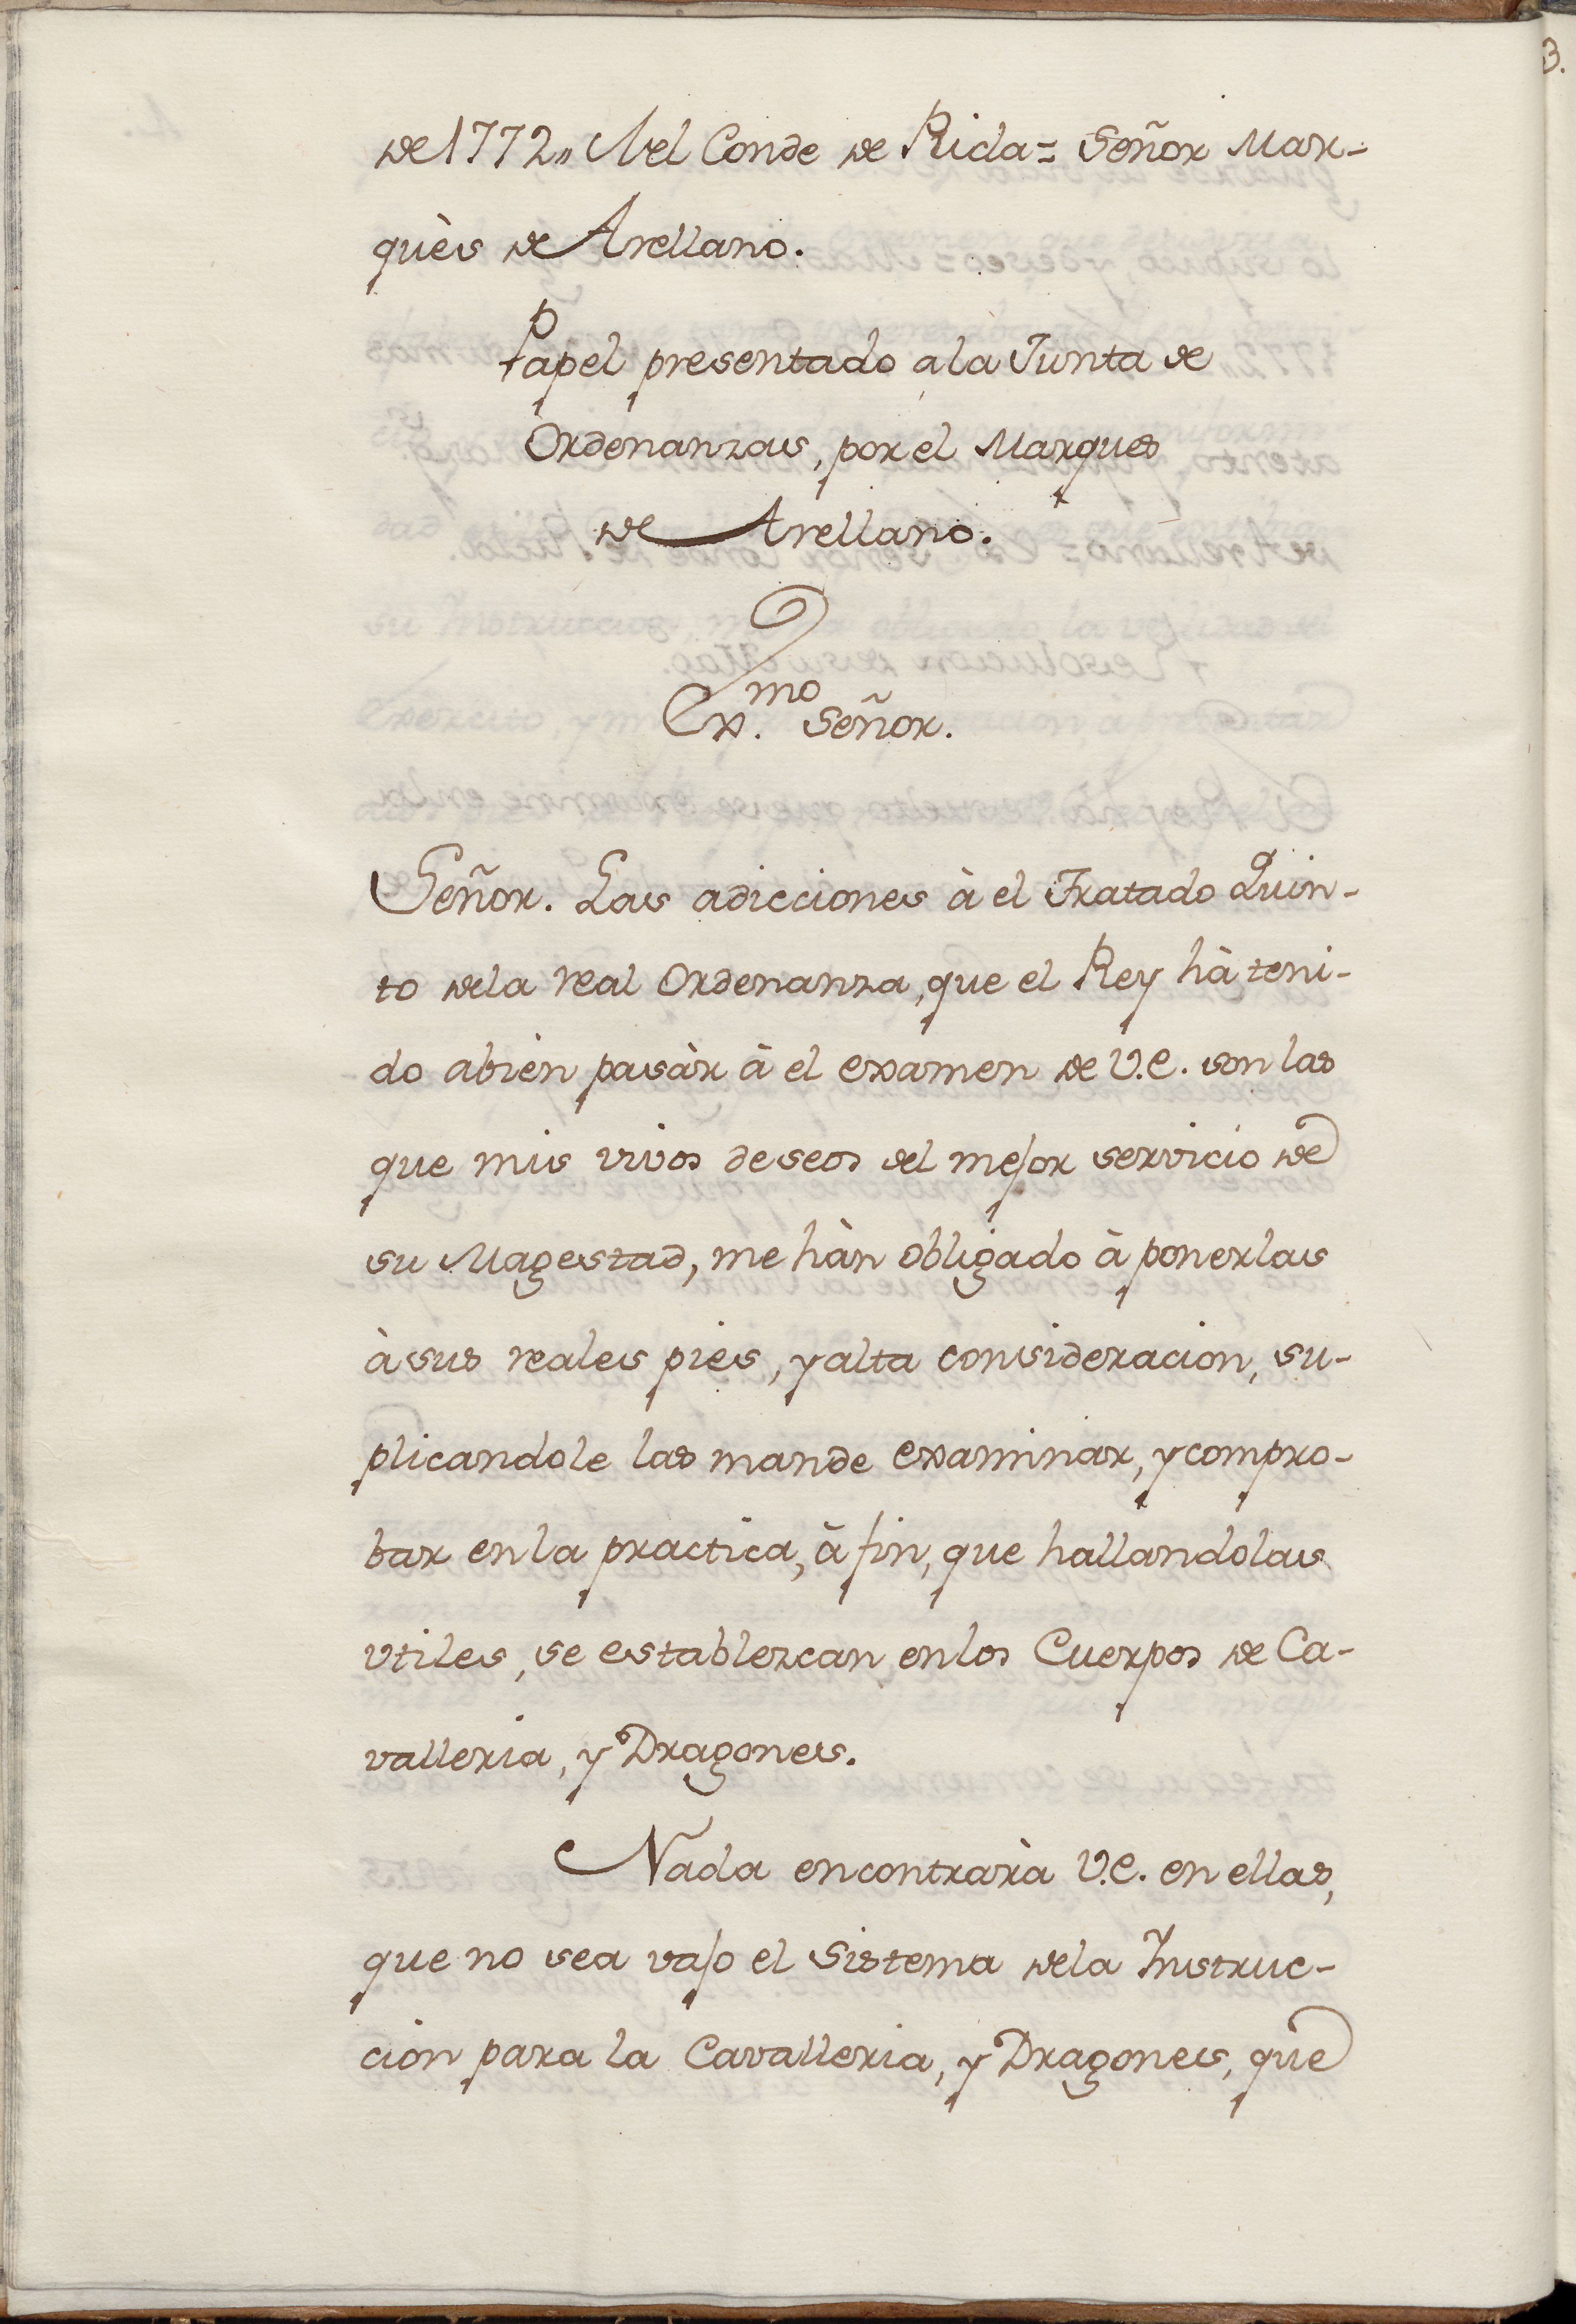 de 1772,, El Conde de Ricla = Señor Mar-
quès de Arellano.
Papel presentado ala Junta de
Ordenanzas, por el Marques
de Arellano.
Ex.mo Señor.
Señor. Las adicciones à el Tratado Quin-
to dela real Ordenanza, que el Rey hà teni-
do abien pasàr à el examen de V.E. son las
que mis vivos deseos del mejor servicio de
su Magestad, me hàn obligado à ponerlas
à sus reales pies, y alta consideracion, su-
plicandole las mande examinar, y compro-
bar en la practica, à fin, que hallandolas
vtiles, se establezcan en los Cuerpos de Ca-
valleria, y Dragones.
Nada encontrarà V.E. en ellas,
que no sea vajo el Sistema dela Instruc-
cion para la Cavalleria, y Dragones, que
3.